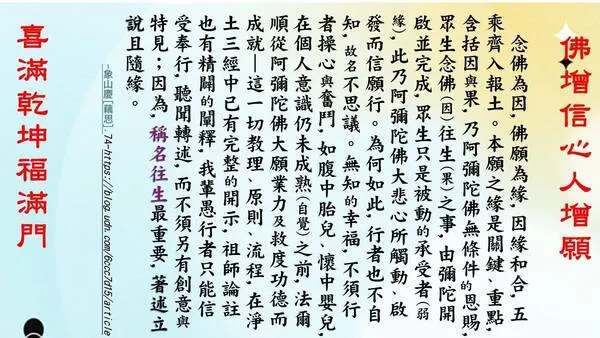 佛增信心人增願
念佛為因,佛願為緣,因緣和合,五
乘齊入報土。本願之緣是關鍵、重點,
含括因與果,乃阿彌陀佛無條件的恩賜,
眾生念佛(因)往生(果)之事,由彌陀開
啟並完成,眾生只是被動的承受者(弱
緣),此乃阿彌陀佛大悲心所觸動、啟
發而信願行。為何如此,行者也不自
知,故名不思議。無知的幸福,不須行
者操心與奮鬥,如腹中胎兒、懷中嬰兒,
在個人意識仍未成熟(自覺)之前,法爾
順從阿彌陀佛大願業力及救度功德而
成就—這一切教理、原則、流程,在淨
土三經中已有完整的開示,祖師論註
也有精闢的闡釋,我輩愚行者只能信
受奉行,聽聞轉述,而不須另有創意與
特見;因為,稱名往生最重要,著述立
說且隨緣。
~象山慶【藕思】. 74~https://blog.udn.com/6ccc7d15/article
喜滿乾坤福滿門